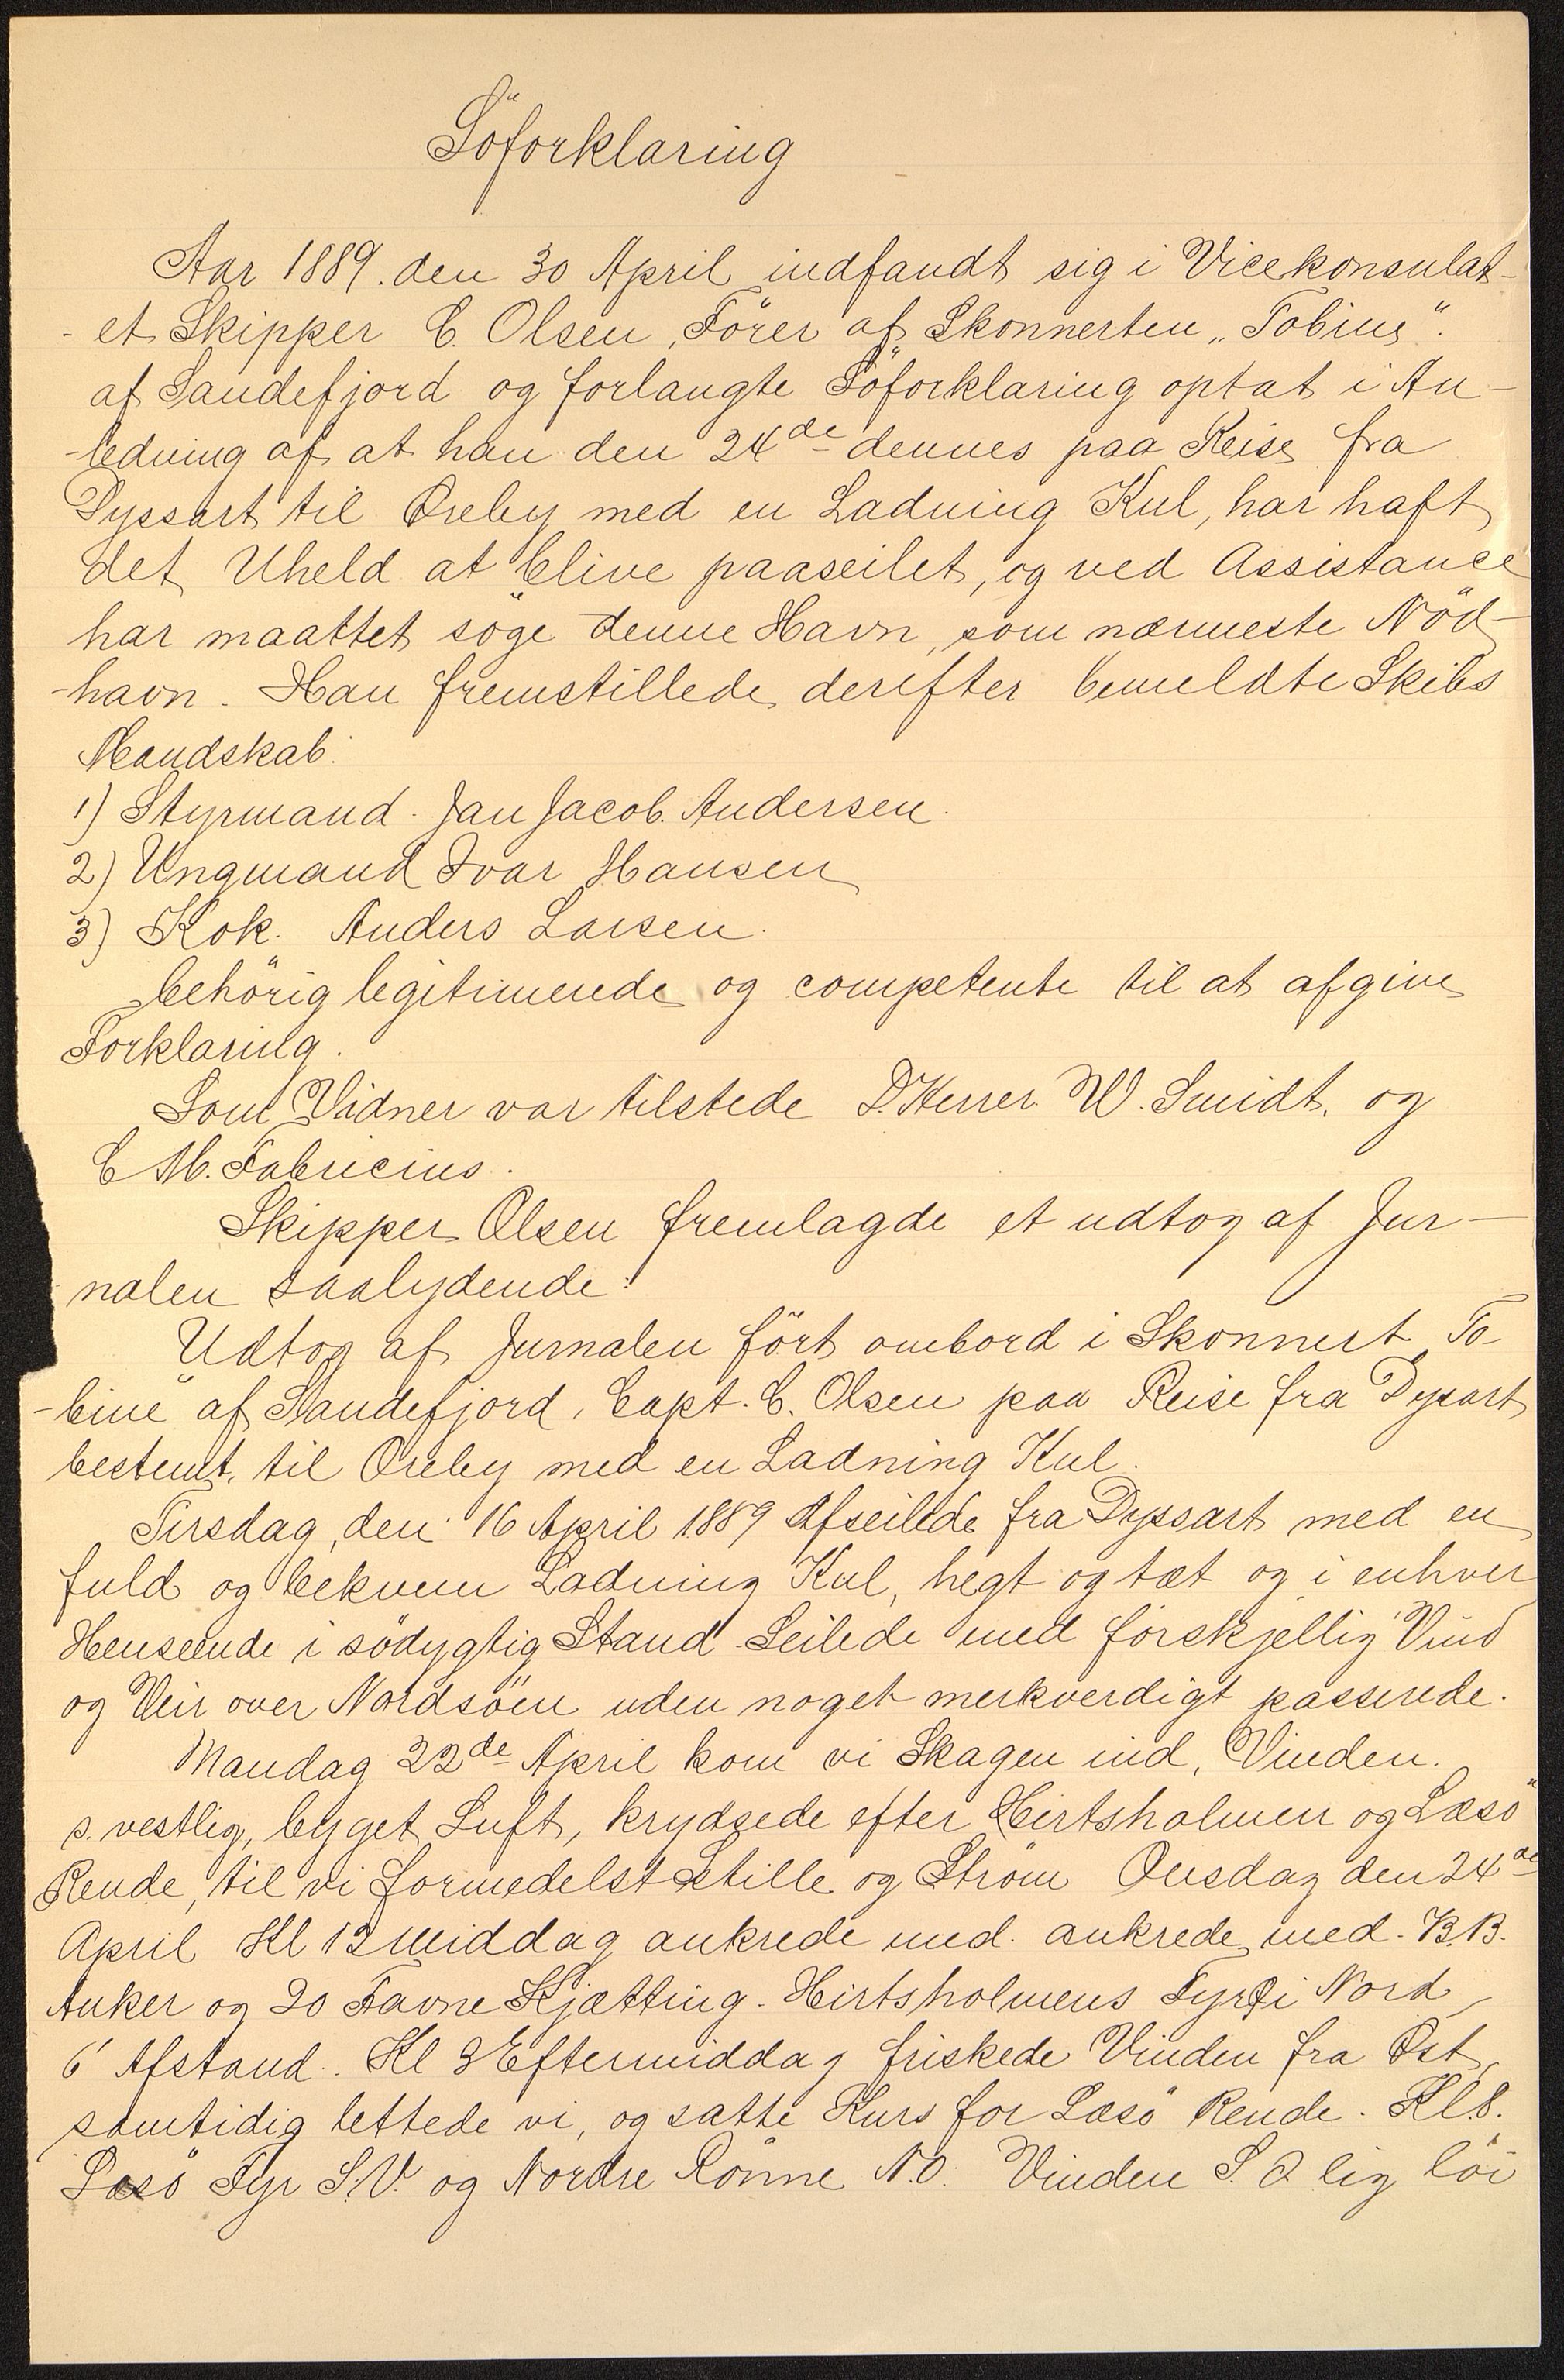 Söforklaring
Aar 1889. den 30 April indfandt sig i Vicekonsulat-
- et Skipper C. Olsen, Förer af Skonnerten „Tobine".
af Sandefjord og forlangte Söforklaring optat i An-
-ledning af at han den 24de dennes paa Reise fra
Dyssart til Oreby med en Ladning Kul, har haft
det Uheld at blive paaseilet, og ved Assistance
har maattet söge denne Havn, som nærmeste Nöd-
-havn. Han fremstillede derefter bemeldte Skibs
Mandskab:
1) Styrmand. Jan Jacob. Andersen.
2) Ungmand Ivar Hansen
3) Kok. Anders Larsen.
behörig legitimerede og competente til at afgive
Forklaring.
Som Vidner var tilstede D'Herrer W. Smidt. og
C M. Fabricius.
Skipper Olsen fremlagde et udtog af Jur-
nalen saalydende:
Udtog af Jurnalen fört ombord i Skonnert „To-
-bine" af Sandefjord, Capt. C. Olsen paa Reise fra Dysart
bestemt. til Oreby med en Ladning Kul.
Tirsdag, den 16 April 1889 Afseilede fra Dyssart med en
fuld og bekvem Ladning Kul, hegt og tæt og i enhver
Henseende i södygtig Stand. Seilede med forskjellig Vind
og Veir over Nordsöen uden noget merkverdigt passerede.
Mandag 22de April kom vi Skagen ind, Vinden.
s. vestlig, byget Luft, krydsede efter Hirtsholmen og Læsö
Rende, til vi formedelst Stille og Ström Onsdag den 24de
April Kl 12 Middag ankrede med. ankrede med. B.B.
Anker og 20 Favne Kjætting. Hirtsholmens Fyr i Nord
6' Afstand. Kl 3 Eftermiddag friskede Vinden fra Öst,
samtidig lettede vi, og satte Kurs for Læsö Rende. Kl. 8.
Læsö Fyr S.V. og Nordre Rönne N.O. Vinden S. O. lig löi